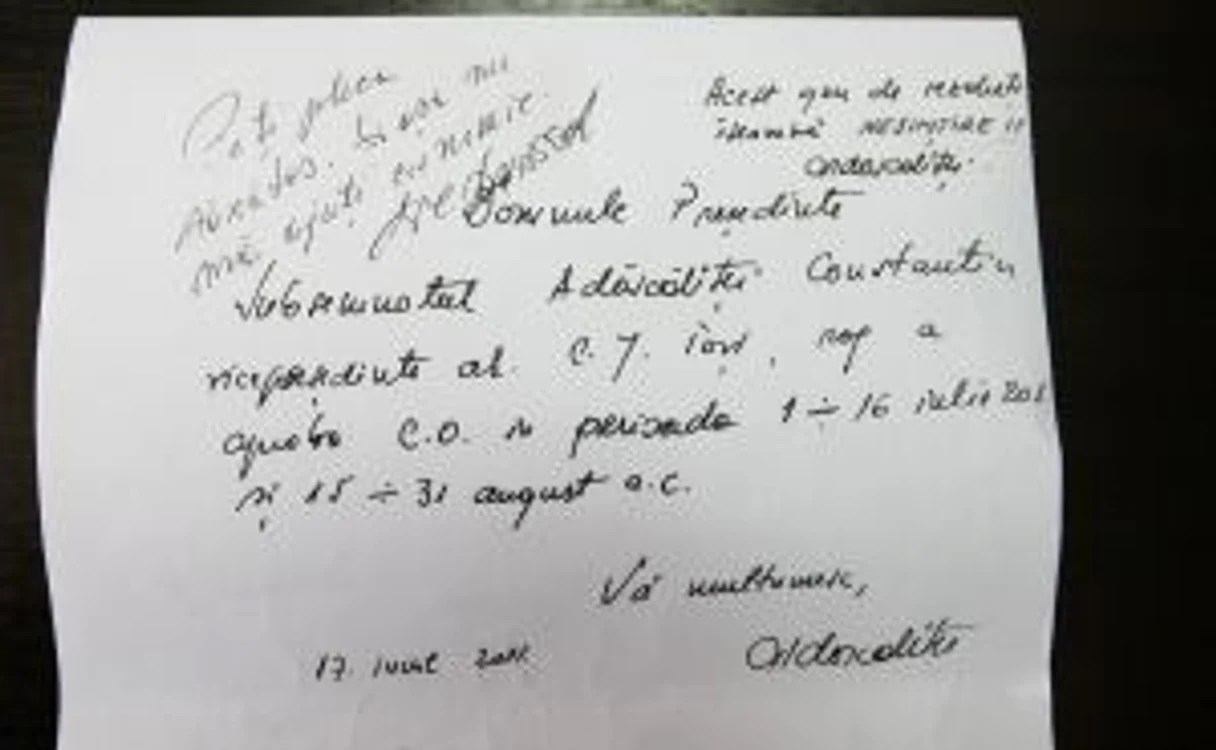 Poți pleca
și noi nu
mă ajuți cu nimic.
Acest gen de rezoluții
înseamnă NESIMȚIRE !!
Domnule Președinte
Subsemnatul Adăscăliței Constantin
vicepreședinte al C.J. Iași, rog a
aproba C.O. în perioada 1÷16 iulie
și 15 ÷ 31 august a.c.
Vă mulțumesc,
17 iunie